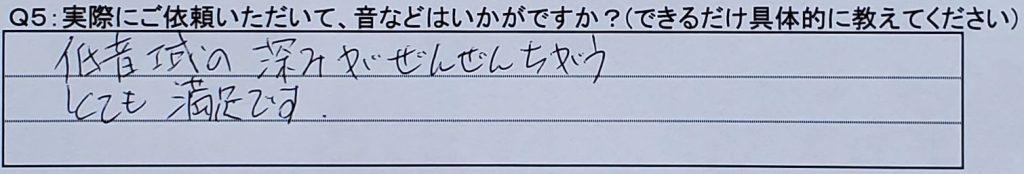 Q5:実際にご依頼いただいて、音などはいかがですか?(できるだけ具体的に教えてください)
低音域の深みがぜんぜんちがう
とても満足です.